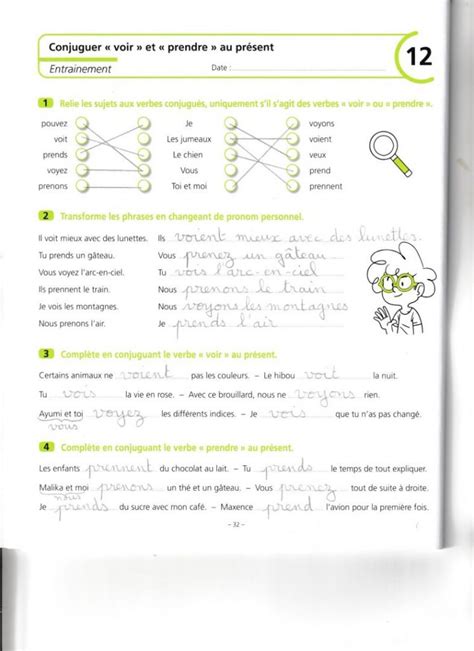 Conjuguer « voir » et « prendre » au présent
12
Entraînement Date :
1 Relie les sujets aux verbes conjugués, uniquement s'il s'agit des verbes « voir » ou « prendre ».
pouvez Je voyons
voit Les jumeaux voient
prends Le chien veux
voyez Vous prend
prenons Toi et moi prennent
2 Transforme les phrases en changeant de pronom personnel.
Il voit mieux avec des lunettes. Ils voient mieux avec des lunettes.
Tu prends un gâteau. Vous prenez un gâteau
Vous voyez l'arc-en-ciel. Tu vois l'arc-en-ciel
Ils prennent le train. Nous prenons le train
Je vois les montagnes. Nous voyons les montagnes
Nous prenons l'air. Je prends l'air
3 Complète en conjuguant le verbe « voir » au présent.
Certains animaux ne voient pas les couleurs. – Le hibou voit la nuit.
Tu vois la vie en rose. – Avec ce brouillard, nous ne voyons rien.
Ayumi et toi voyez les différents indices. – Je vois que tu n'as pas changé.
vous
4 Complète en conjuguant le verbe « prendre » au présent.
Les enfants prennent du chocolat au lait. – Tu prends le temps de tout expliquer.
Malika et moi prenons un thé et un gâteau. – Vous prenez tout de suite à droite.
nous
Je prends du sucre avec mon café. – Maxence prend l'avion pour la première fois.
– 32 –